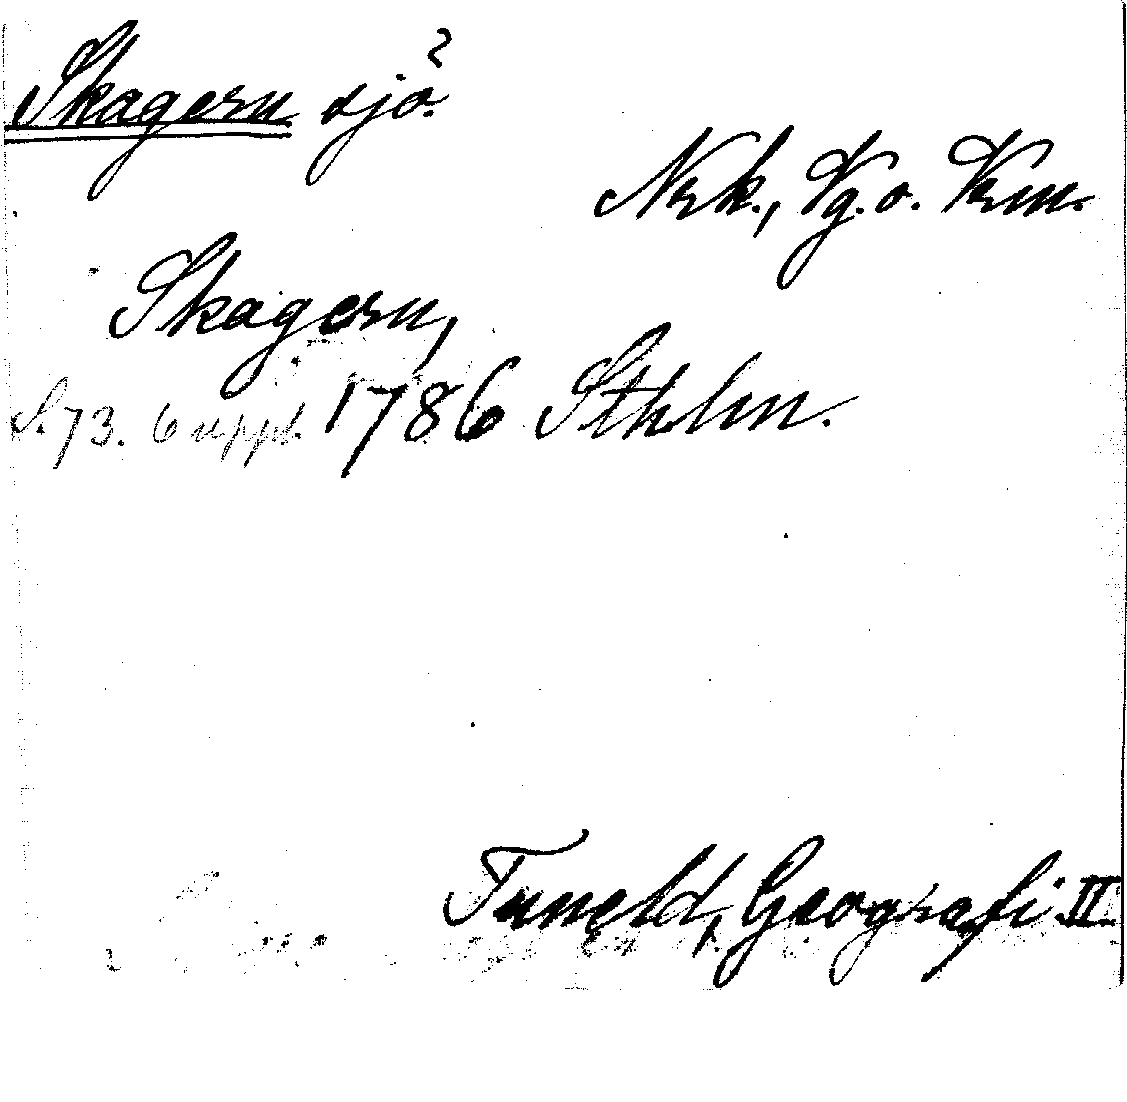 Skagern sjö?
Nrk., Vg. o. Vrm.
Skagern,
S. 73. 6 uppl. 1786 Sthlm.
Tuneld, Geografi II